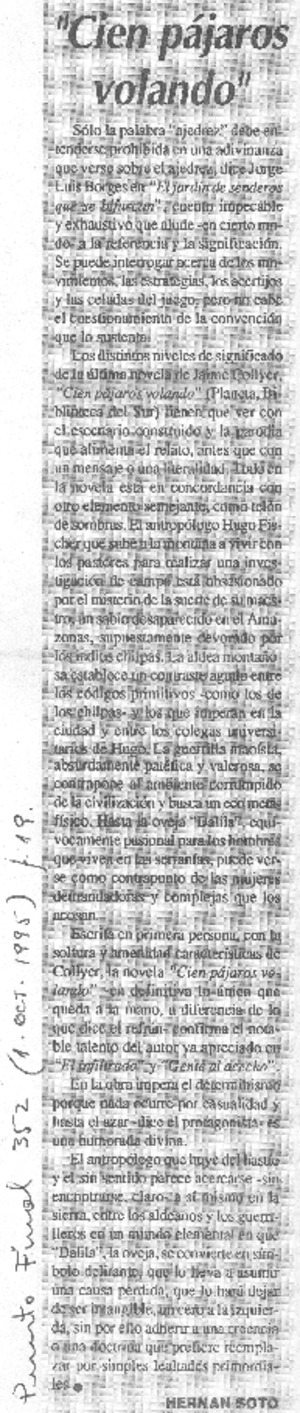 "Cien pájaros
volando"
Sólo la palabra "ajedrez" debe en-
tenderse prohibida en una adivinanza
que verse sobre el ajedrez, dice Jorge
Luis Borges en "El jardín de senderos
que se bifurcan", cuento impecable
y exhaustivo que alude -en cierto mo-
do- a la referencia y la significación.
Se puede interrogar acerca de los mo-
vimientos, las estrategias, los acertijos
y las celadas del juego, pero no cabe
el cuestionamiento de la convención
que lo sustenta.
Los distintos niveles de significado
de la última novela de Jaime Collyer,
"Cien pájaros volando" (Planeta, Bi-
blioteca del Sur) tienen que ver con
el escenario construido y la parodia
que alimenta el relato, antes que con
un mensaje o una literalidad. Todo en
la novela está en concordancia con
otro elemento semejante, como telón
de sombras. El antropólogo Hugo Fis-
cher que sube a la montaña a vivir con
los pastores para realizar una inves-
tigación de campo está obsesionado
por el misterio de la suerte de su maes-
tro, un sabio desaparecido en el Ama-
zonas, supuestamente devorado por
los indios chilpas. La aldea montaño-
sa establece un contraste agudo entre
los códigos primitivos -como los de
los chilpas- y los que imperan en la
ciudad y entre los colegas universi-
tarios de Hugo. La guerrilla maoísta,
absurdamente patética y valerosa, se
contrapone al ambiente corrompido
de la civilización y busca un eco meta-
físico. Hasta la oveja "Dalila", equí-
vocamente pasional para los hombres
que viven en las serranías, puede ver-
se como contrapunto de las mujeres
demandadoras y complejas que los
acosan.
Escrita en primera persona, con la
soltura y amenidad características de
Collyer, la novela "Cien pájaros vo-
lando" -en definitiva lo único que
queda a la mano, a diferencia de lo
que dice el refrán- confirma el nota-
ble talento del autor ya apreciado en
"El infiltrado" y "Gente al acecho".
En la obra impera el determinismo
porque nada ocurre por casualidad y
hasta el azar -dice el protagonista- es
una humorada divina.
El antropólogo que huye del hastío
y el sin sentido parece acercarse -sin
encontrarse, claro- a sí mismo en la
sierra, entre los aldeanos y los guerri-
lleros en un mundo elemental en que
"Dalila", la oveja, se convierte en sím-
bolo delirante, que lo lleva a asumir
una causa perdida, que lo hará dejar
de ser intangible, un cero a la izquier-
da, sin por ello adherir a una creencia
o una doctrina que prefiere reempla-
zar por simples lealtades primordia-
les
HERNAN SOTO
Punto Final 352 (1. oct. 1995) p. 19.